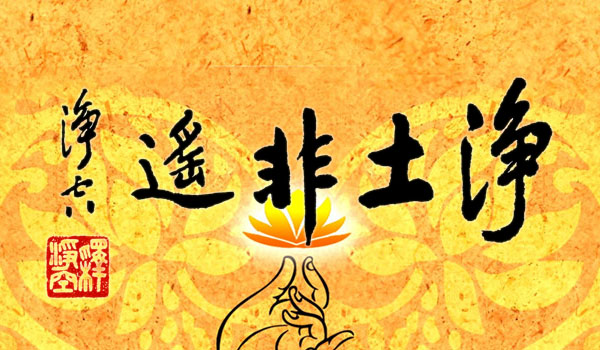 淨土非遙
淨空
釋淨空